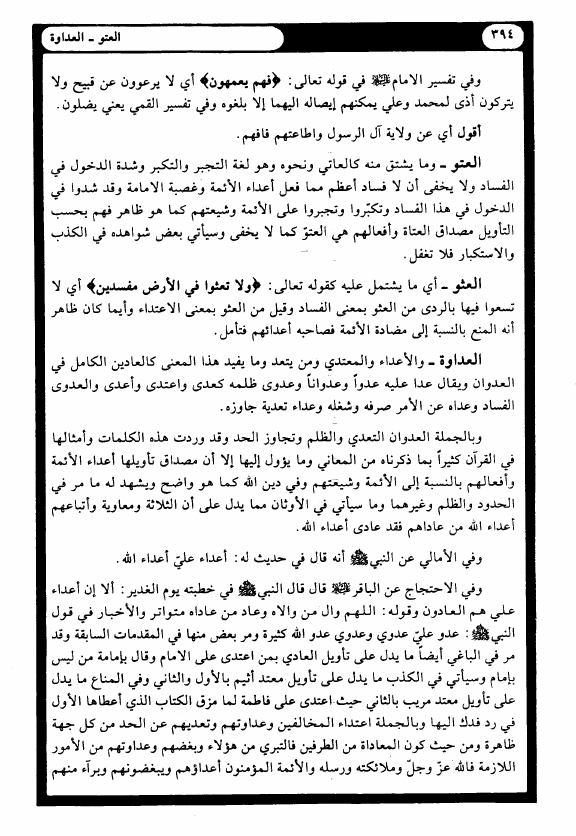 ٣٩٤
العتو ــ العداوة
وفي تفسير الامام ﷺ في قوله تعالى: ﴿فهم يعمهون﴾ أي لا يرعوون عن قبيح ولا
يتركون أذى لمحمد وعلي يمكنهم إيصاله اليهما إلا بلغوه وفي تفسير القمي يعني يضلون.
أقول أي عن ولاية آل الرسول واطاعتهم فافهم.
العتو ــ وما يشتق منه كالعاتي ونحوه وهو لغة التجبر والتكبر وشدة الدخول في
الفساد ولا يخفى أن لا فساد أعظم مما فعل أعداء الأئمة وغصبة الامامة وقد شدوا في
الدخول في هذا الفساد وتكبّروا وتجبروا على الأئمة وشيعتهم كما هو ظاهر فهم بحسب
التأويل مصداق العتاة وأفعالهم هي العتوّ كما لا يخفى وسيأتي بعض شواهده في الكذب
والاستكبار فلا تغفل.
العثو ــ أي ما يشتمل عليه كقوله تعالى: ﴿ولا تعثوا في الأرض مفسدين﴾ أي لا
تسعوا فيها بالردى من العثو بمعنى الفساد وقيل من العثو بمعنى الاعتداء وأيما كان ظاهر
أنه المنع بالنسبة إلى مضادة الأئمة فصاحبه أعدائهم فتأمل.
العداوة ــ والأعداء والمعتدي ومن يتعد وما يفيد هذا المعنى كالعادين الكامل في
العدوان ويقال عدا عليه عدواً وعدواناً وعدوى ظلمه كعدى واعتدى وأعدى والعدوى
الفساد وعداه عن الأمر صرفه وشغله وعداء تعدية جاوزه.
وبالجملة العدوان التعدي والظلم وتجاوز الحد وقد وردت هذه الكلمات وأمثالها
في القرآن كثيراً بما ذكرناه من المعاني وما يؤول إليها إلا أن مصداق تأويلها أعداء الأئمة
وأفعالهم بالنسبة إلى الأئمة وشيعتهم وفي دين الله كما هو واضح ويشهد له ما مر في
الحدود والظلم وغيرهما وما سيأتي في الأوثان مما يدل على أن الثلاثة ومعاوية وأتباعهم
أعداء الله من عاداهم فقد عادى أعداء الله.
وفي الأمالي عن النبي ﷺ أنه قال في حديث له: أعداء عليّ أعداء الله.
وفي الاحتجاج عن الباقر ﷺ قال قال النبي ﷺ في خطبته يوم الغدير: ألا إن أعداء
علي هم العادون وقوله: اللهم وال من والاه وعاد من عاداه متواتر والأخبار في قول
النبي ﷺ: عدو عليّ عدوي وعدوي عدو الله كثيرة ومر بعض منها في المقدمات السابقة وقد
مر في الباغي أيضاً ما يدل على تأويل العادي بمن اعتدى على الامام وقال بإمامة من ليس
بإمام وسيأتي في الكذب ما يدل على تأويل معتد أثيم بالأول والثاني وفي المناع ما يدل
على تأويل معتد مريب بالثاني حيث اعتدى على فاطمة لما مزق الكتاب الذي أعطاها الأول
في رد فدك اليها وبالجملة اعتداء المخالفين وعداوتهم وتعديهم عن الحد من كل جهة
ظاهرة ومن حيث كون المعاداة من الطرفين فالتبري من هؤلاء وبغضهم وعداوتهم من الأمور
اللازمة فالله عزّ وجلّ وملائكته ورسله والأئمة المؤمنون أعداؤهم ويبغضونهم وبرآء منهم